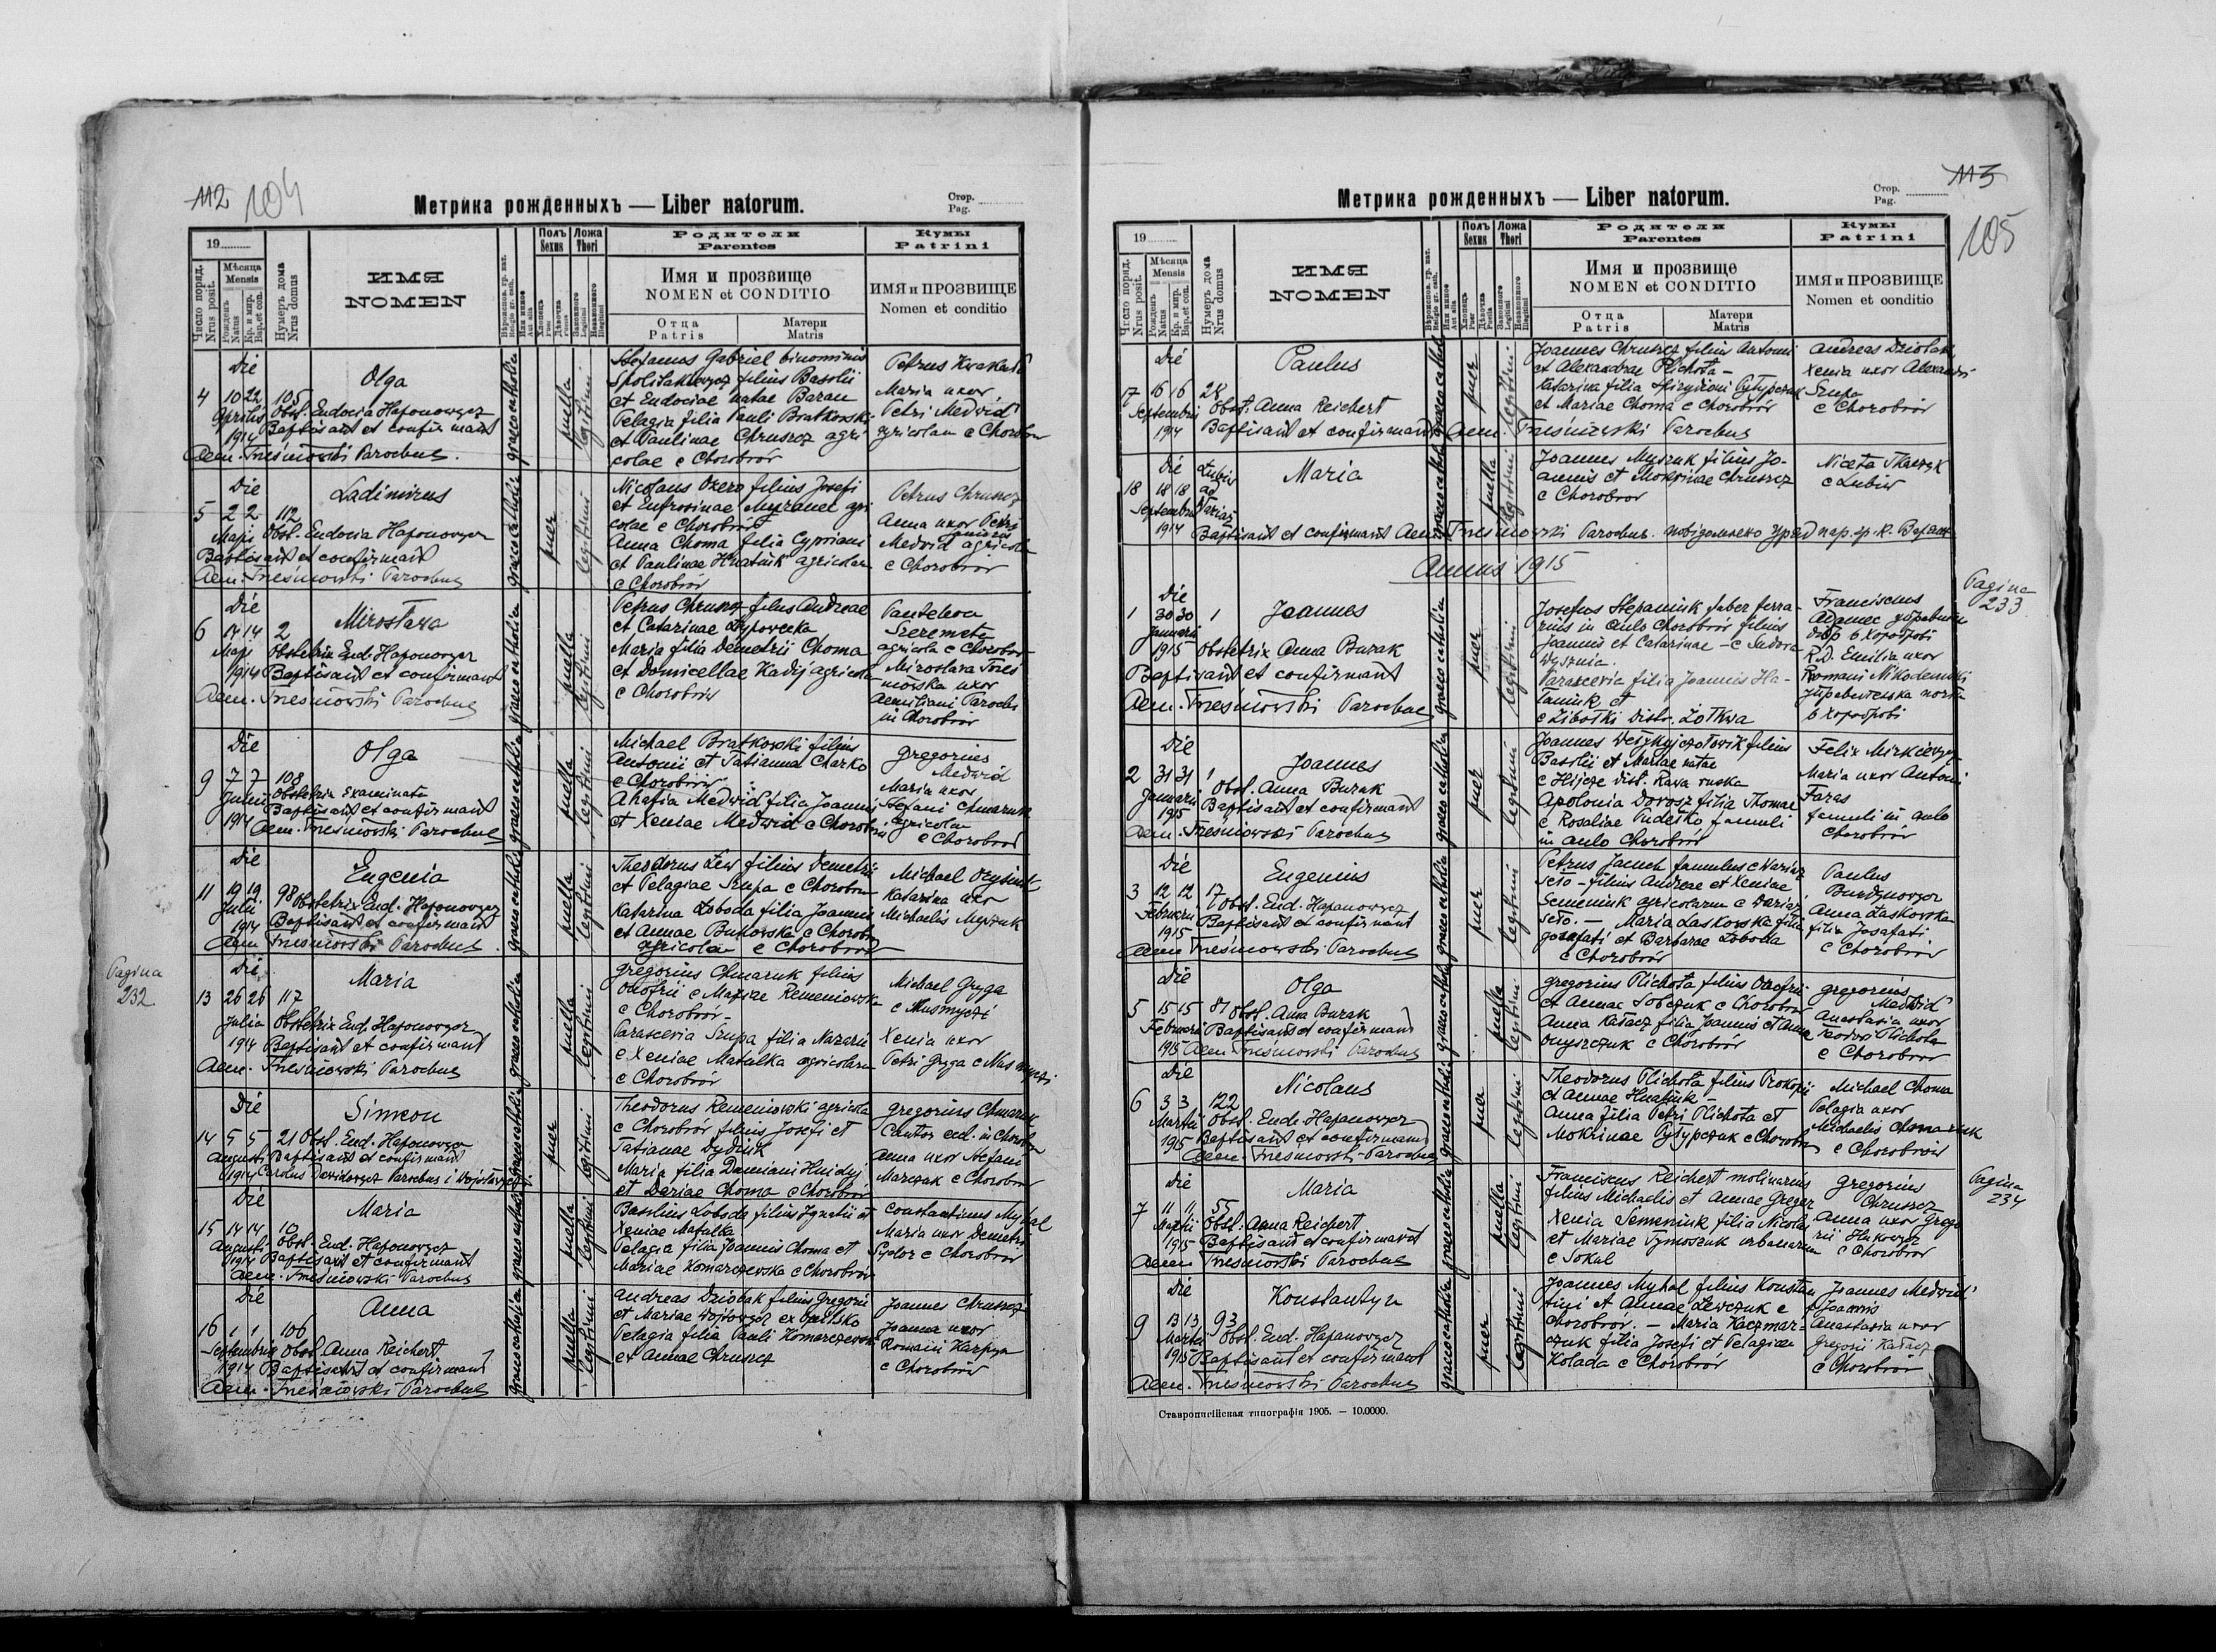 112 104
Метрика рожденныхъ — Liber natorum.
Стор.
Pag.
19
Число поряд.
Nrus posit.
Мѣсяца
Mensis
Рожденъ
Natus
Кр. и мир.
Bap. et con.
Нумеръ дома
Nrus domus
ИМЯ
NOMEN
Полъ
Sexus
Ложа
Thori
Хлопецъ
Puer
Дѣвочка
Puella
Законного
Legitimi
Незаконного
Illegitimi
Родители
Parentes
Имя и прозвище
NOMEN et CONDITIO
Отца
Patris
Матери
Matris
Кумы
Patrini
ИМЯ и ПРОЗВИЩЕ
Nomen et conditio
Die
4 10 22 105
Aprilis
1914
Olga
Obst. Eudocia Haponowycz
Baptisavit et confirmavit
Aem. Tresniowski Parochus.
graeco catholica
puella
legitimi
Stefanus Gabriel binominis
Spolitakiewycz filius Basilii
et Eudociae natae Baran
Pelagia filia Pauli Bratkowski
et Paulinae Chruszcz agri
colae e Chorobrów
Petrus
Maria uxor
Petri Medwid
agricolae e Chorobrow
Die
5 2 2 112
Maji
Ladimirus
Obst. Eudocia Haponowycz
Baptisavit et confirmavit
Aem. Tresniowski Parochus
graeco catholica
puer
legitimi
Nicolaus Ozero filius Josefi
et Eufrosinae agri
colae e Chorobrów
Anna Choma filia Cypriani
et Paulinae Hnatiuk agricolae
e Chorobrów
Petrus Chruszcz
Anna uxor Petri
Medwid agricola
e Chorobrow
Die
6 14 14 2
Maji
1914
Mirosława
Obstetrix Eud. Haponowycz
Baptisavit et confirmavit
Aem. Tresniowski Parochus
graeco catholica
puella
legitimi
Petrus Chruszcz filius Andreae
et Catarinae Łypowecka
Maria filia Demetrii Choma
et Domicellae Kadij agricolae
e Chorobrów
Panteleon
Szeremeta
agricola e Chorobrow
Miroslava Tres
niowska uxor
Aemiliani Parochi
in Chorobrow
Die
9 7 7 108
Julii
1914
Olga
Obstetrix examinata
Baptisavit et confirmavit
Aem. Tresniowski Parochus
graeco catholica
puella
legitimi
Michael Bratkowski filius
Antonii et Tatianna Charko
e Chorobrów
Ahafia Medwid filia Joannis
et Xeniae Medwid e Chorobrów
Gregorius
Medwid
Maria uxor
Stefani Chmaruk
agricolae
e Chorobrow
Die
11 19 19 98
Julii
1914
Eugenia
Obstetrix Eud. Haponowycz
Baptisavit et confirmavit
Aem. Tresniowski Parochus.
graeco catholica
puella
legitimi
Theodorus Lew filius Demetrii
et Pelagiae Szupa e Chorobrow
Katarina Łoboda filia Joannis
et Annae Butkowska e Chorobrow
agricolae e Chorobrow
Michael
Katarina uxor
Michaelis Myszuk
Pagina
232
Die
13 26 26 117
Julii
1914
Maria
Obstetrix Eud. Haponowycz
Baptisavit et confirmavit
Aem. Tresniowski Parochus
graeco catholica
puella
legitimi
Gregorius Chmaruk filius
Onofrii e Mariae Remeniowska
e Chorobrów -
Parascevia Szupa filia Nazarii
e Xeniae Matiałka agricolarum
e Chorobrów
Michael Gryga
e
Xenia uxor
Petri Gryga e
Die
14 5 5 21
Augusti
1914
Simeon
Obst. Eud. Haponowycz
Baptisavit et confirmavit
Carolus Dawidowycz Parochus
graeco catholica
puer
legitimi
Theodorus Remeniowski agricola
e Chorobrow filius Josefi et
Tatianae Dydiuk
Maria filia Damiani Hnidyj
et Dariae Choma e Chorobrów
Gregorius Chmaruk
Cantor eccl. in Chorobrow
Anna uxor Stefani
Marczak e Chorobrow
Die
15 14 14 10
Augusti
1914
Maria
Obst. Eud. Haponowycz
Baptisavit et confirmavit
Aem. Tresniowski Parochus
graeco catholica
puella
legitimi
Basilius Łoboda filius Ignatii et
Xeniae Matiałka
Pelagia filia Joannis Choma et
Mariae Komarczewska e Chorobrów
Constantinus Myhal
Maria uxor Demetrii
Sydor e Chorobrow
Die
16 1 1 106
Septembris
1914
Anna
Obst. Anna Reichert
Baptisavit et confirmavit
Aem. Tresniowski Parochus
graeco catholica
puella
legitimi
Andreas Dziobak filius Gregorii
et Mariae Wojtowycz ex
Pelagia filia Pauli Komarczewski
et Annae Chruszcz
Joannes Chruszcz
Joanna uxor
Romani Karpyn
e Chorobrów
113
105
Метрика рожденныхъ — Liber natorum.
Стор.
Pag.
19
Число поряд.
Nrus posit.
Мѣсяца
Mensis
Рожденъ
Natus
Кр. и мир.
Bap. et con.
Нумеръ дома
Nrus domus
ИМЯ
NOMEN
Полъ
Sexus
Ложа
Thori
Хлопецъ
Puer
Дѣвочка
Puella
Законного
Legitimi
Незаконного
Illegitimi
Родители
Parentes
Имя и прозвище
NOMEN et CONDITIO
Отца
Patris
Матери
Matris
Кумы
Patrini
ИМЯ и ПРОЗВИЩЕ
Nomen et conditio
Die
17 16 16 28
Septembris
1914
Paulus
Obst. Anna Reichert
Baptisavit et confirmavit Aem. Tresniowski Parochus
graeco cathol
puer
legitimi
Joannes Chruszcz filius Antonii
et Alexandrae Plichota -
Catarina filia Spirydioni Pyłypczuk
et Mariae Choma e Chorobrów
Andreas Dziobak
Xenia uxor Alexandri
Szupa
e Chorobrów
Die
18 18 18
Septembris
1914
Łubiw
ad
Wariaż
Maria
Baptisavit et confirmavit Aem. Tresniowski Parochus.
graeco cathol
puella
legitimi
Joannes Myszuk filius Jo-
annis et Mokrinae Chruszcz
e Chorobrow
Niceta Tkaczyk
e Lubiw
Annus 1915
Pagina
233
Die
1 30 30 1
Januarii
1915
Joannes
Obstetrix Anna Burak
Baptisavit et confirmavit
Aem. Tresniowski Parochus
graeco catholica
puer
legitimi
Josefus Stepaniuk faber ferra-
rius in aulo Chorobrów filius
Joannis et Catarinae - e Sudova
Wysznia.
Parascevia filia Joannis Ha-
et
distr. Żołkwa
Franciscus
Adamec
в Хоробровi
R.D. Emilia uxor
Romani Nikodemski
в Хоробровi
Die
2 31 31 1
Januarii
1915
Joannes
Obst. Anna Burak
Baptisavit et confirmavit
Aem. Tresniowski Parochus
graeco catholica
puer
legitimi
Joannes filius
Basilii et Mariae natae
e Hijcze dist. Rawa ruska
Apolonia Dorosz filia Thomae
e Rosaliae Pudełko famuli
in aulo Chorobrów
Felix Mirkiewycz
Maria uxor Antoni
Faras
famuli in aulo
Chorobrów
Die
3 12 12 17
Februarii
1915
Eugenius
Obst. Eud. Haponowycz
Baptisavit et confirmavit
Aem. Tresniowski Parochus
graeco catholica
puer
legitimi
Petrus Januch famulus e Wariaż
seło - filius Andreae et Xeniae
Semeniuk agricolarum e Wariaż
seło. - Maria Laskowska filia
Josafati et Barbarae Łoboda
e Chorobrów
Paulus
Anna Laskowska
filia Josafati
e Chorobrów
Die
5 15 15 81
Februarii
1915
Olga
Obst. Anna Burak
Baptisavit et confirmavit
Aem. Tresniowski Parochus
graeco catholica
puella
legitimi
Gregorius Plichota filius Onofrii
et Annae Sobczuk e Chorobrów
Anna Kałacz filia Joannis et Anna
Onyszczuk e Chorobrów
Gregorius
Medwid
Anastasia uxor
Teodori Plichota
e Chorobrow
Die
6 3 3 122
Martii
1915
Nicolaus
Obst. Eud. Haponowycz
Baptisavit et confirmavit
Aem. Tresniowski Parochus
graeco catholica
puer
legitimi
Theodorus Plichota filius Prokopii
et Annae Hnatiuk -
Anna filia Petri Plichota et
Mokrinae Pyłypczuk e Chorobrów
Michael Choma
Pelagia uxor
Michaelis Chmaruk
e Chorobrów
Pagina
234
Die
7 11 11 55
Martii
1915
Maria
Obst. Anna Reichert
Baptisavit et confirmavit
Aem. Tresniowski Parochus
graeco catholica
puella
legitimi
Franciscus Reichert molinarius
filius Michaelis et Annae Greger
Xenia Semeniuk filia Nicolai
et Mariae Tymoszuk urbanarum
e Sokal
Gregorius
Chruszcz
Anna uxor Grego
rii
e Chorobrow
Die
9 13 13 93
Martii
1915
Konstantyn
Obst. Eud. Haponowycz
Baptisavit et confirmavit
Aem. Tresniowski Parochus
graeco catholica
puer
legitimi
Joannes Myhal filius Konstan
tini et Annae Lewczuk e
Chorobrow. - Maria Kaczmar-
czuk filia Josefi et Pelagiae
Kolada e Chorobrów
Joannes Medwid
Joannis
Anastasia uxor
Gregorii Kałacz
e Chorobrów
Ставропигійская типографія 1905. — 10.0000.